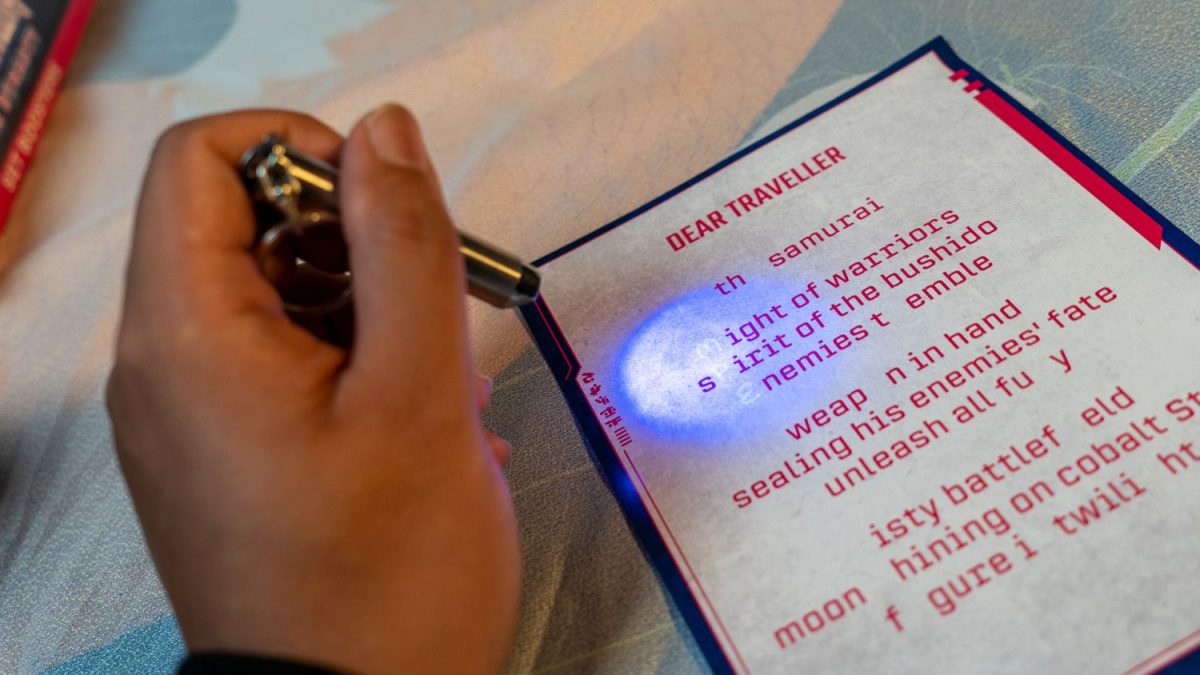 DEAR TRAVELLER
th samurai
might of warriors
s irit of the bushido
enemies t emble
weap n in hand
sealing his enemies' fate
unleash all fu y
isty battlef eld
moon hining on cobalt St
f gure i twili ht